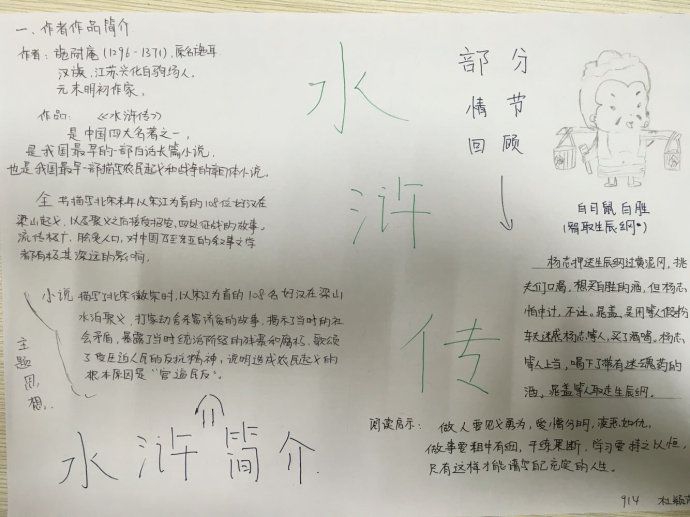 一、作者作品简介
作者：施耐庵(1296-1371)，原名施耳
汉族，江苏兴化白驹场人。
元末明初作家。
作品：《水浒传》
是中国四大名著之一，
是我国最早的一部白话长篇小说，
也是我国最早一部描写农民起义和战争的章回体小说。
全书描写北宋末年以宋江为首的108位好汉在
梁山起义，以及聚义之后接受招安，四处征战的故事。
流传极广，脍炙人口，对中国乃至东亚的叙事文学
都有极其深远的影响。
主题思想
小说描写北宋徽宗时，以宋江为首的108名好汉在梁山
水泊聚义，打家劫舍杀富济贫的故事，揭示了当时的社
会矛盾，暴露了当时统治阶级的残暴和腐朽，歌颂
了受压迫人民的反抗精神，说明造成农民起义的
根本原因是"官逼民反"。
水浒简介
水浒传
部分
情节
回顾
白日鼠白胜
(智取生辰纲)
杨志押送生辰纲过黄泥冈，挑
夫们口渴，想买白胜的酒，但杨志
怕中计，不让。晁盖、吴用等人假扮
车夫迷惑杨志等人，买了酒喝。杨志
等人上当，喝下了带有迷魂药的
酒，晁盖等人取走生辰纲。
阅读启示：做人要见义勇为，爱憎分明，疾恶如仇，
做事要粗中有细，干练果断，学习要持之以恒，
只有这样才能谱写自己充实的人生。
914